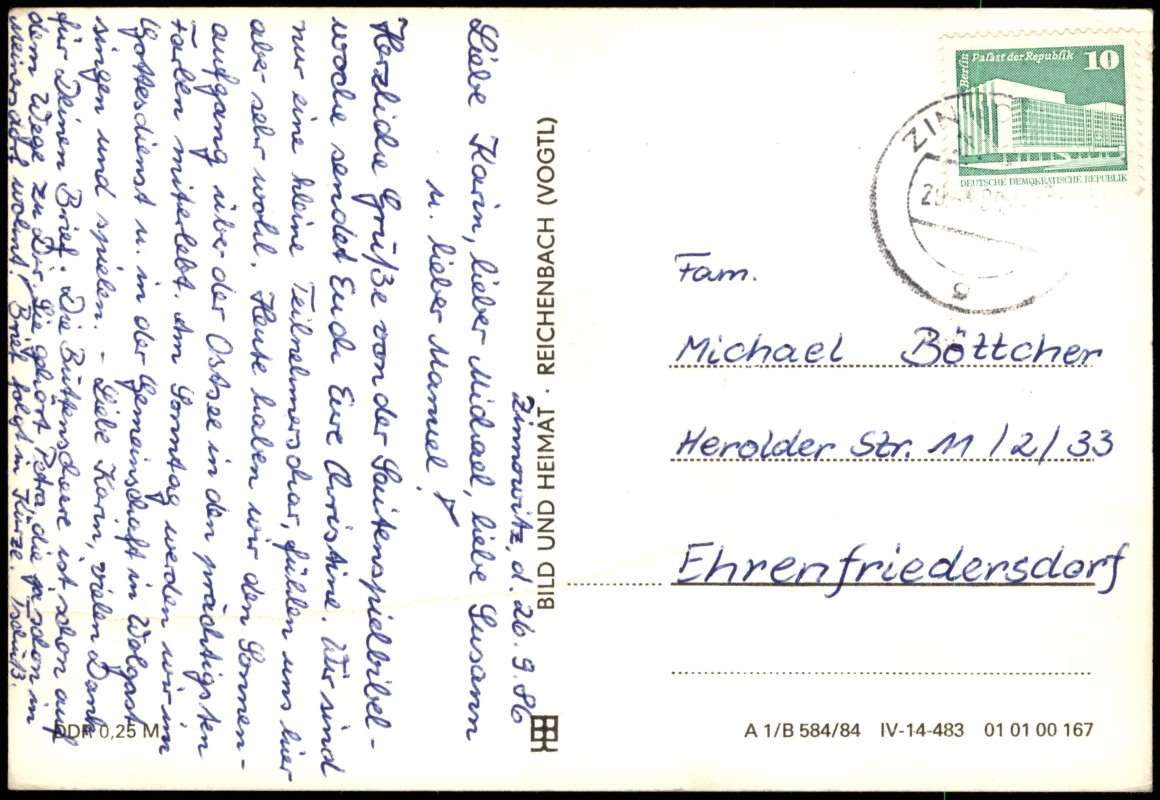 Zinnowitz, d. 26.9.86
Liebe Karin, lieber Michael, liebe Susann
u. lieber Manuel!
Herzliche Grüße von der Saitenspielbibel-
woche sendet Euch Eure Christine. Wir sind
nur eine kleine Teilnehmerschar, fühlen uns hier
aber sehr wohl. Heute haben wir den Sonnen-
aufgang über der Ostsee in den prächtigsten
Farben miterlebt. Am Sonntag werden wir im
Gottesdienst u. in der Gemeinschaft in Wolgast
singen und spielen. - Liebe Karin, vielen Dank
für Deinen Brief. Die Büttenschere ist schon auf
dem Wege zu Dir. Sie gehört Petra, die schon in
meinersdorf wohnt. Brief folgt in Kürze. Tschüß.
BILD UND HEIMAT · REICHENBACH (VOGTL)
DDR 0,25 M
Berlin
Palast der Republik
10
DEUTSCHE DEMOKRATISCHE REPUBLIK
ZINNO
29
a
Fam.
Michael Böttcher
Herolder Str. 11/2/33
Ehrenfriedersdorf
A 1/B 584/84 IV-14-483 01 01 00 167